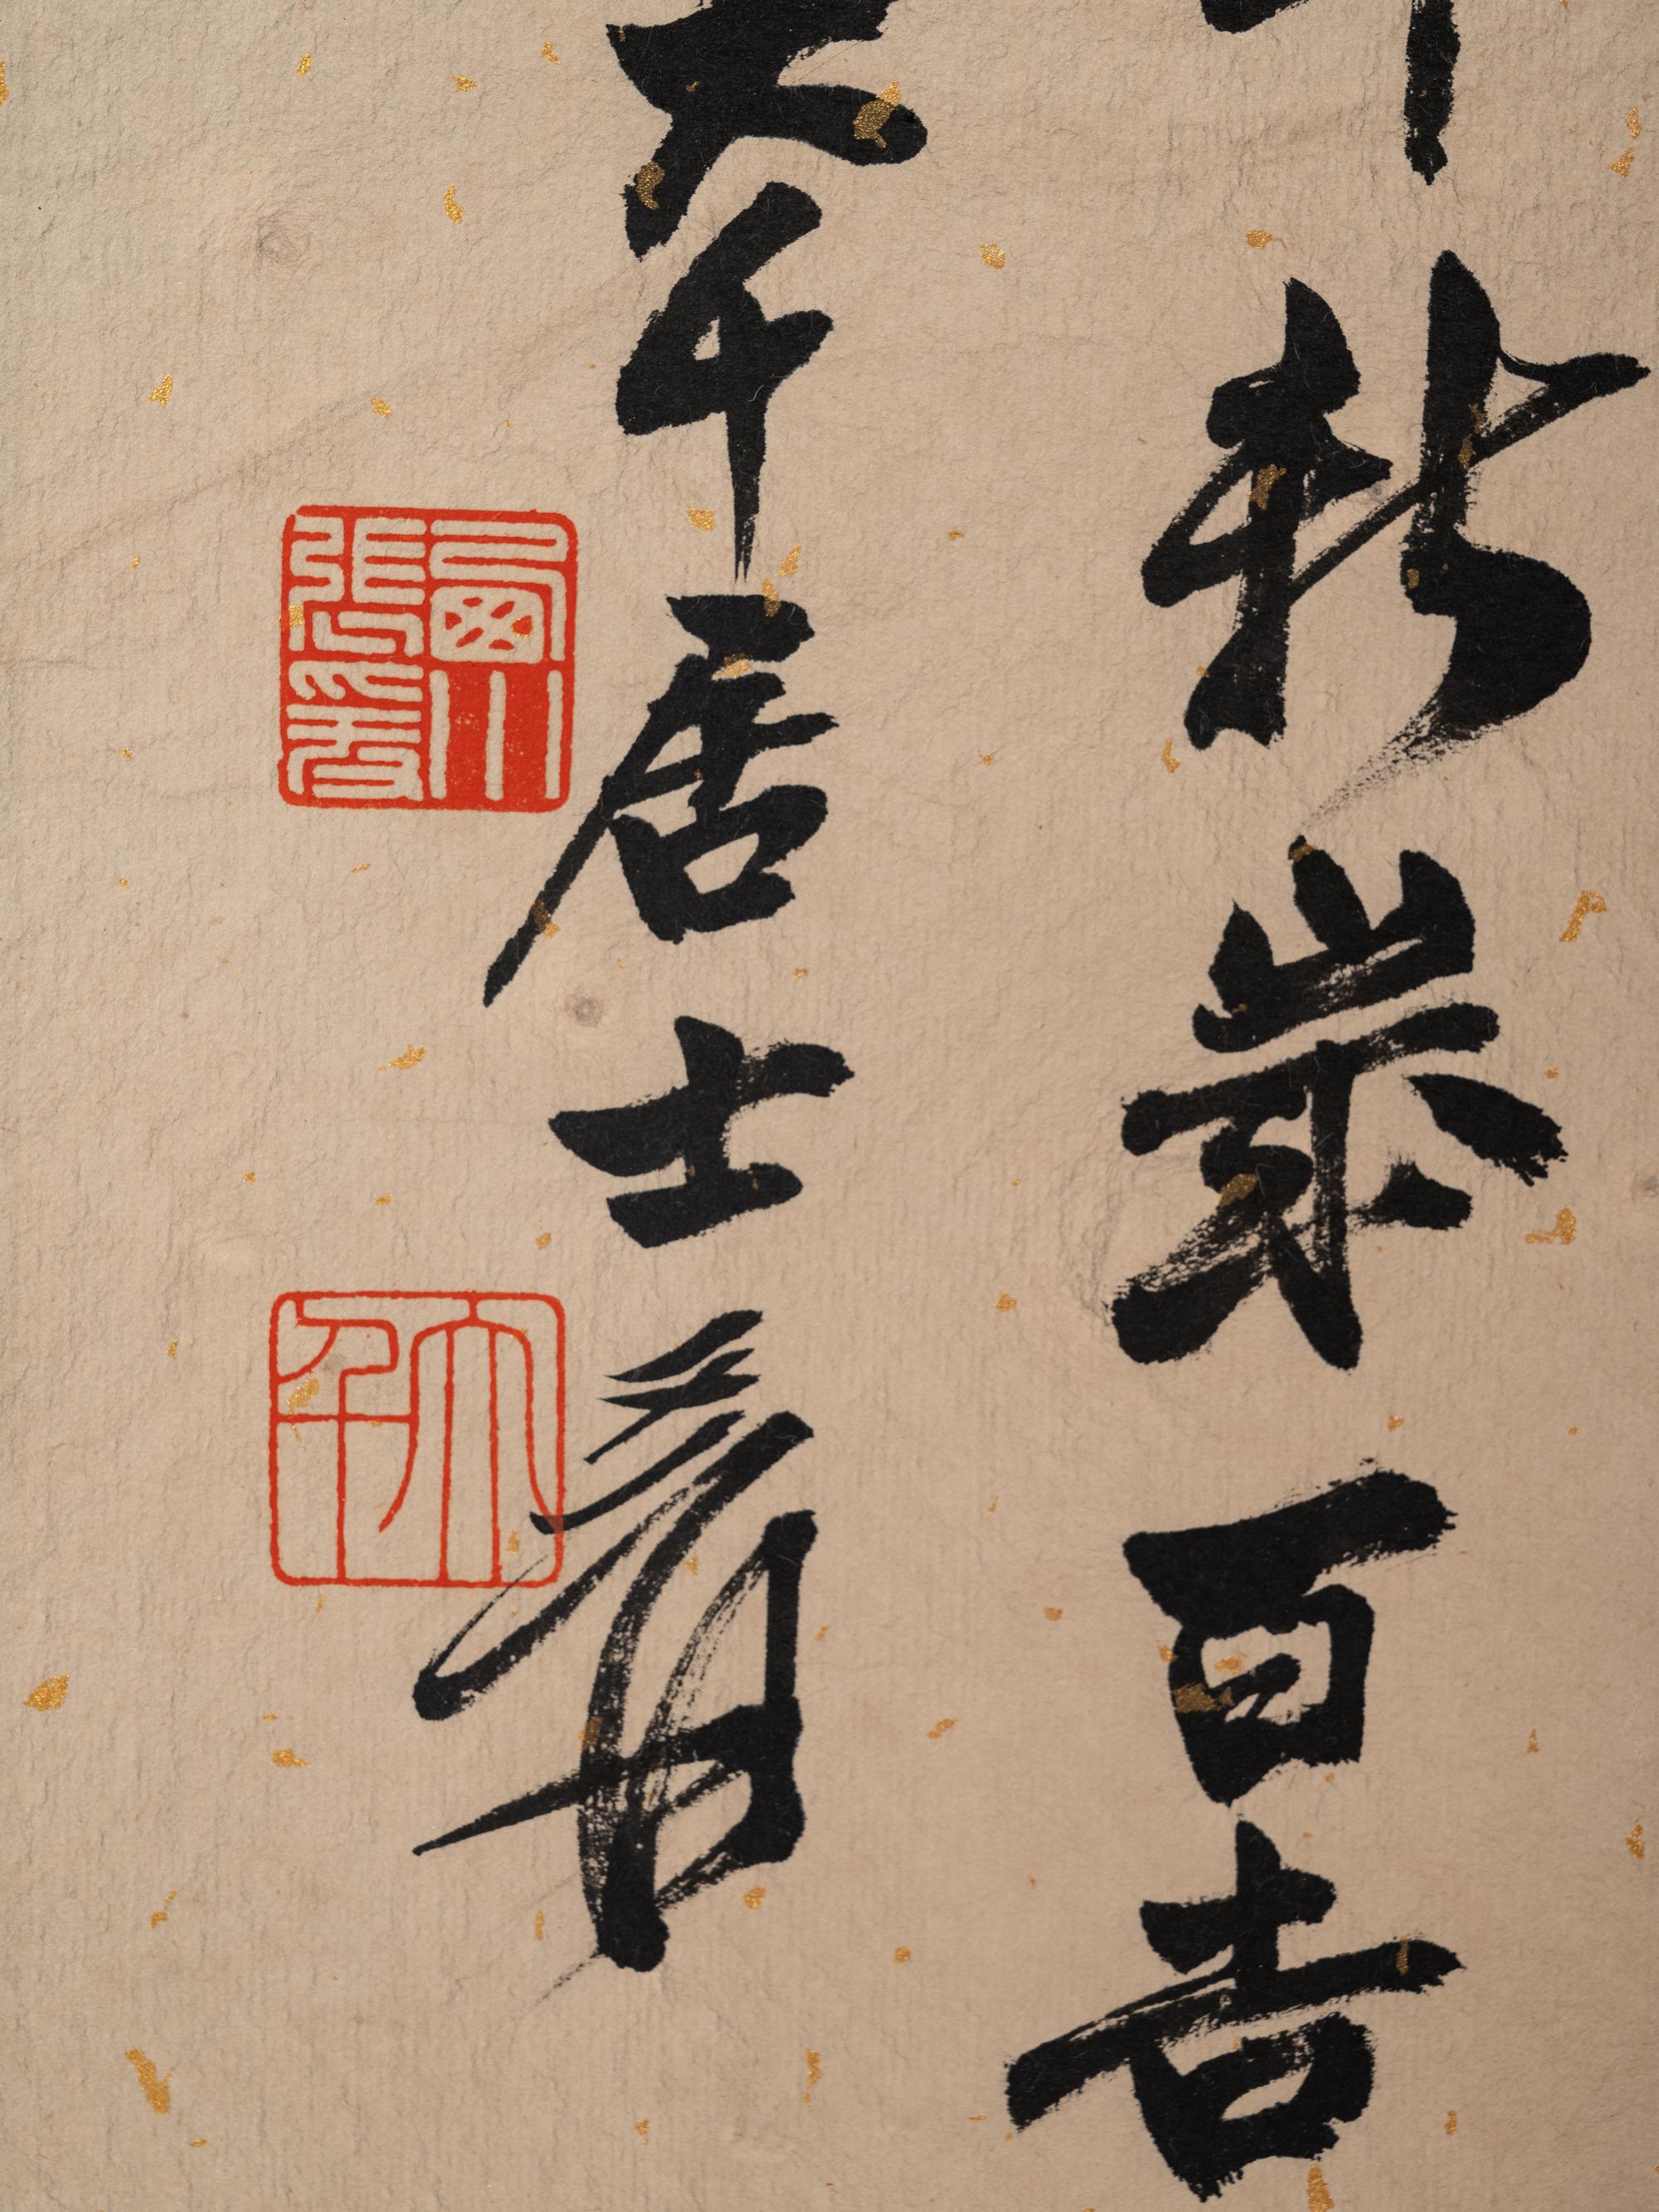 新歲百吉
大千居士爰
西川張爰
大千